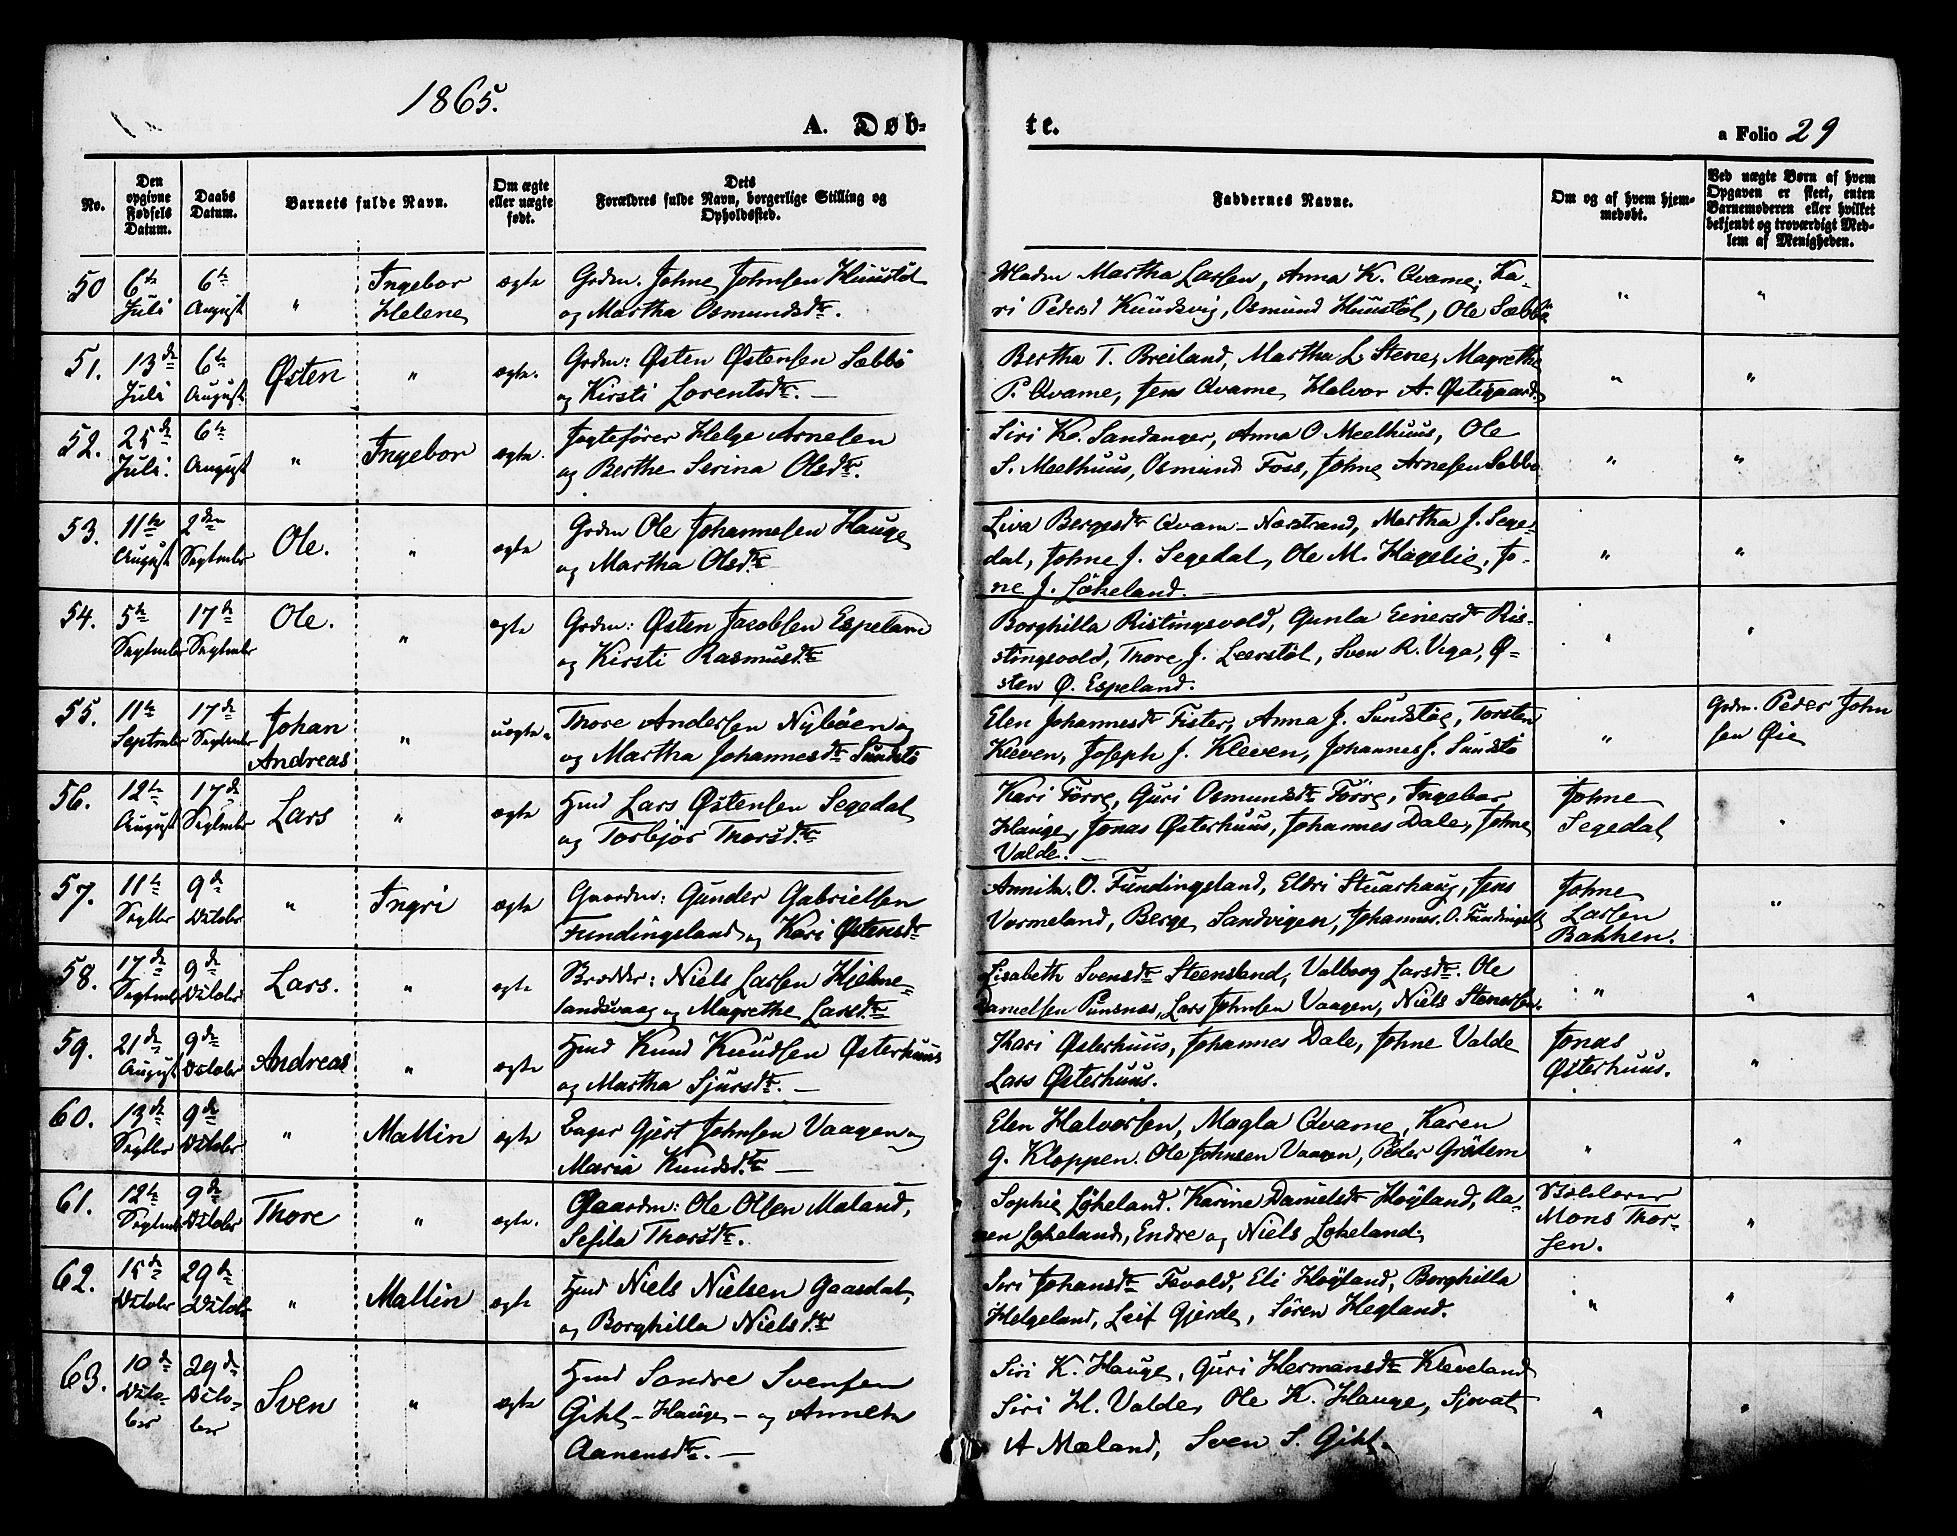 1865.
A. Døb-
te.
a Folio 29
No.
Den opgivne Fødsels Datum.
Daabs Datum.
Barnets fulde Navn.
Om ægte eller uægte født.
Dets Forældres fulde Navn, borgerlige Stilling og Opholdssted.
Faddernes Navne.
Om og af hvem hjemmedøbt.
Ved uægte Børn af hvem Opgaven er skeet, enten Barnemoderen eller hvilket bekjendt og troværdigt Medlem af Menigheden.
50 6te Juli 6te August " Ingebor Helene ægte
Grdm. Johne Johnsen Huustøl
og Martha Osmundsdtr.
Madm Martha Larsen, Anna K. Qvame, Ka-
ri Pedersd Knudsvig, Osmund Huustøl, Ole Sæbbø " "
51. 13de Juli 6te August Østen " ægte.
Grdm: Østen Østensen Sæbbø
og Kirsti Lorentsdtr. —
Bertha T. Breiland, Martha L Stene, Magrethe
P. Qvame, Jens Qvame, Halvor A. Østigaard. " "
52. 25de Juli. 6te August " Ingebor ægte.
Jagtefører Helge Arnesen
og Berthe Serina Olsdtr.
Siri K. Sandanger, Anna O Meelhuus, Ole
S. Meelhuus, Osmund Foss, Johne Arnesen Sæbbø " "
53. 11te August 2den September Ole. " ægte
Grdm Ole Johannesen Hauge
og Martha Olsdtr
Liva Bergesdtr Qvam - Nærstrand, Martha J. Sege-
dal, Johne J. Segedal, Ole M. Hagelie, Jo-
ne J. Løkeland. " "
54. 5te September 17de September Ole. " ægte
Grdm: Østen Jacobsen Espeland
og Kirsti Rasmusdtr
Borghilla Ristingsvold, Gunla Einersdtr Ris-
stingsvold, Thore J. Leerstøl, Sven R. Viga, Ø-
sten Ø. Espeland. " "
55. 11te September 17de September Johan Andreas " uægte.
Thore Andersen Nybøen og
og Martha Johannesdtr Sundstø
Elen Johannesdtr Fister, Anna J. Sundstøe, Torsten
Kleven, Joseph J. Kleven, Johannes J. Sundstø "
Grdm. Peder John
sen Øie
56. 12te August 17de September Lars " ægte
Hmd Lars Østensen Segedal
og Torbjør Thorsdtr
Kari Tørre, Guri Osmundsdtr Tørre, Ingebor
Hauge, Jonas Østerhuus, Johannes Dale, Johne
Valde. —
Johne
Segedal "
57. 11te Septbr 9de October " Ingri ægte
Gaardm: Gunder Gabrielsen
Fundingsland og Kari Østensdtr
Annik. O. Fundingsland, Eldri Stuarhaug, Jens
Vormeland, Berge Sandvigen, Johannes. O. Fundingsl
Johne
Larsen
Bakken. "
58. 17de September 9de October Lars. " ægte
Niels Larsen Hjelme-
landsvaag og Magrethe Larsdtr
Lisabeth Svensdtr Steensland, Valborg Larsdtr. Ole
Danielsen Punsnæs, Lars Johnsen Vaagen, Niels Stenersen. " "
59. 21de August 9de October Andreas " ægte
Hmd Knud Knudsen Østerhuus
og Martha Sjursdtr. —
Kari Østerhuus, Johannes Dale, Johne Valde
Lars Østerhuus.
Jonas
Østerhuus. "
60. 13de Septbr 9de October " Mallin ægte
Gjert Johnsen Vaagen og
Maria Knudsdtr —
Elen Halvorsen, Magla Qvame, Karen
G. Kloppen. Ole Johnsen Vaagen, Peder Grøtem " "
61. 12te September 9de October Thore " ægte.
Gaardm: Ole Olsen Maland,
Sesila Thorsdtr.
Sophie Løkeland. Karine Danielsdtr Høyland, Aa-
nen Løkeland, Endre og Niels Løkeland.
Skolelærer
Mons Thor-
sen. "
62. 15de October 29de October " Mallin ægte
Hmd Niels Nielsen Gaasdal,
og Borghilla Nielsdtr
Siri Johansdtr Tevold, Eli Høyland, Borghilla
Helgeland, Leif Gjerde, Søren Hegland. " "
63. 10de October 29de October Sven " ægte
Hmd Sondre Svensen
Gihl - Hauge - og Anneta
Aanensdtr. —
Siri K. Hauge, Guri Hermansdtr Kleveland
Siri H. Valde, Ole K. Hauge, Sjovat
A Mæland, Sven S. Gihl. " "